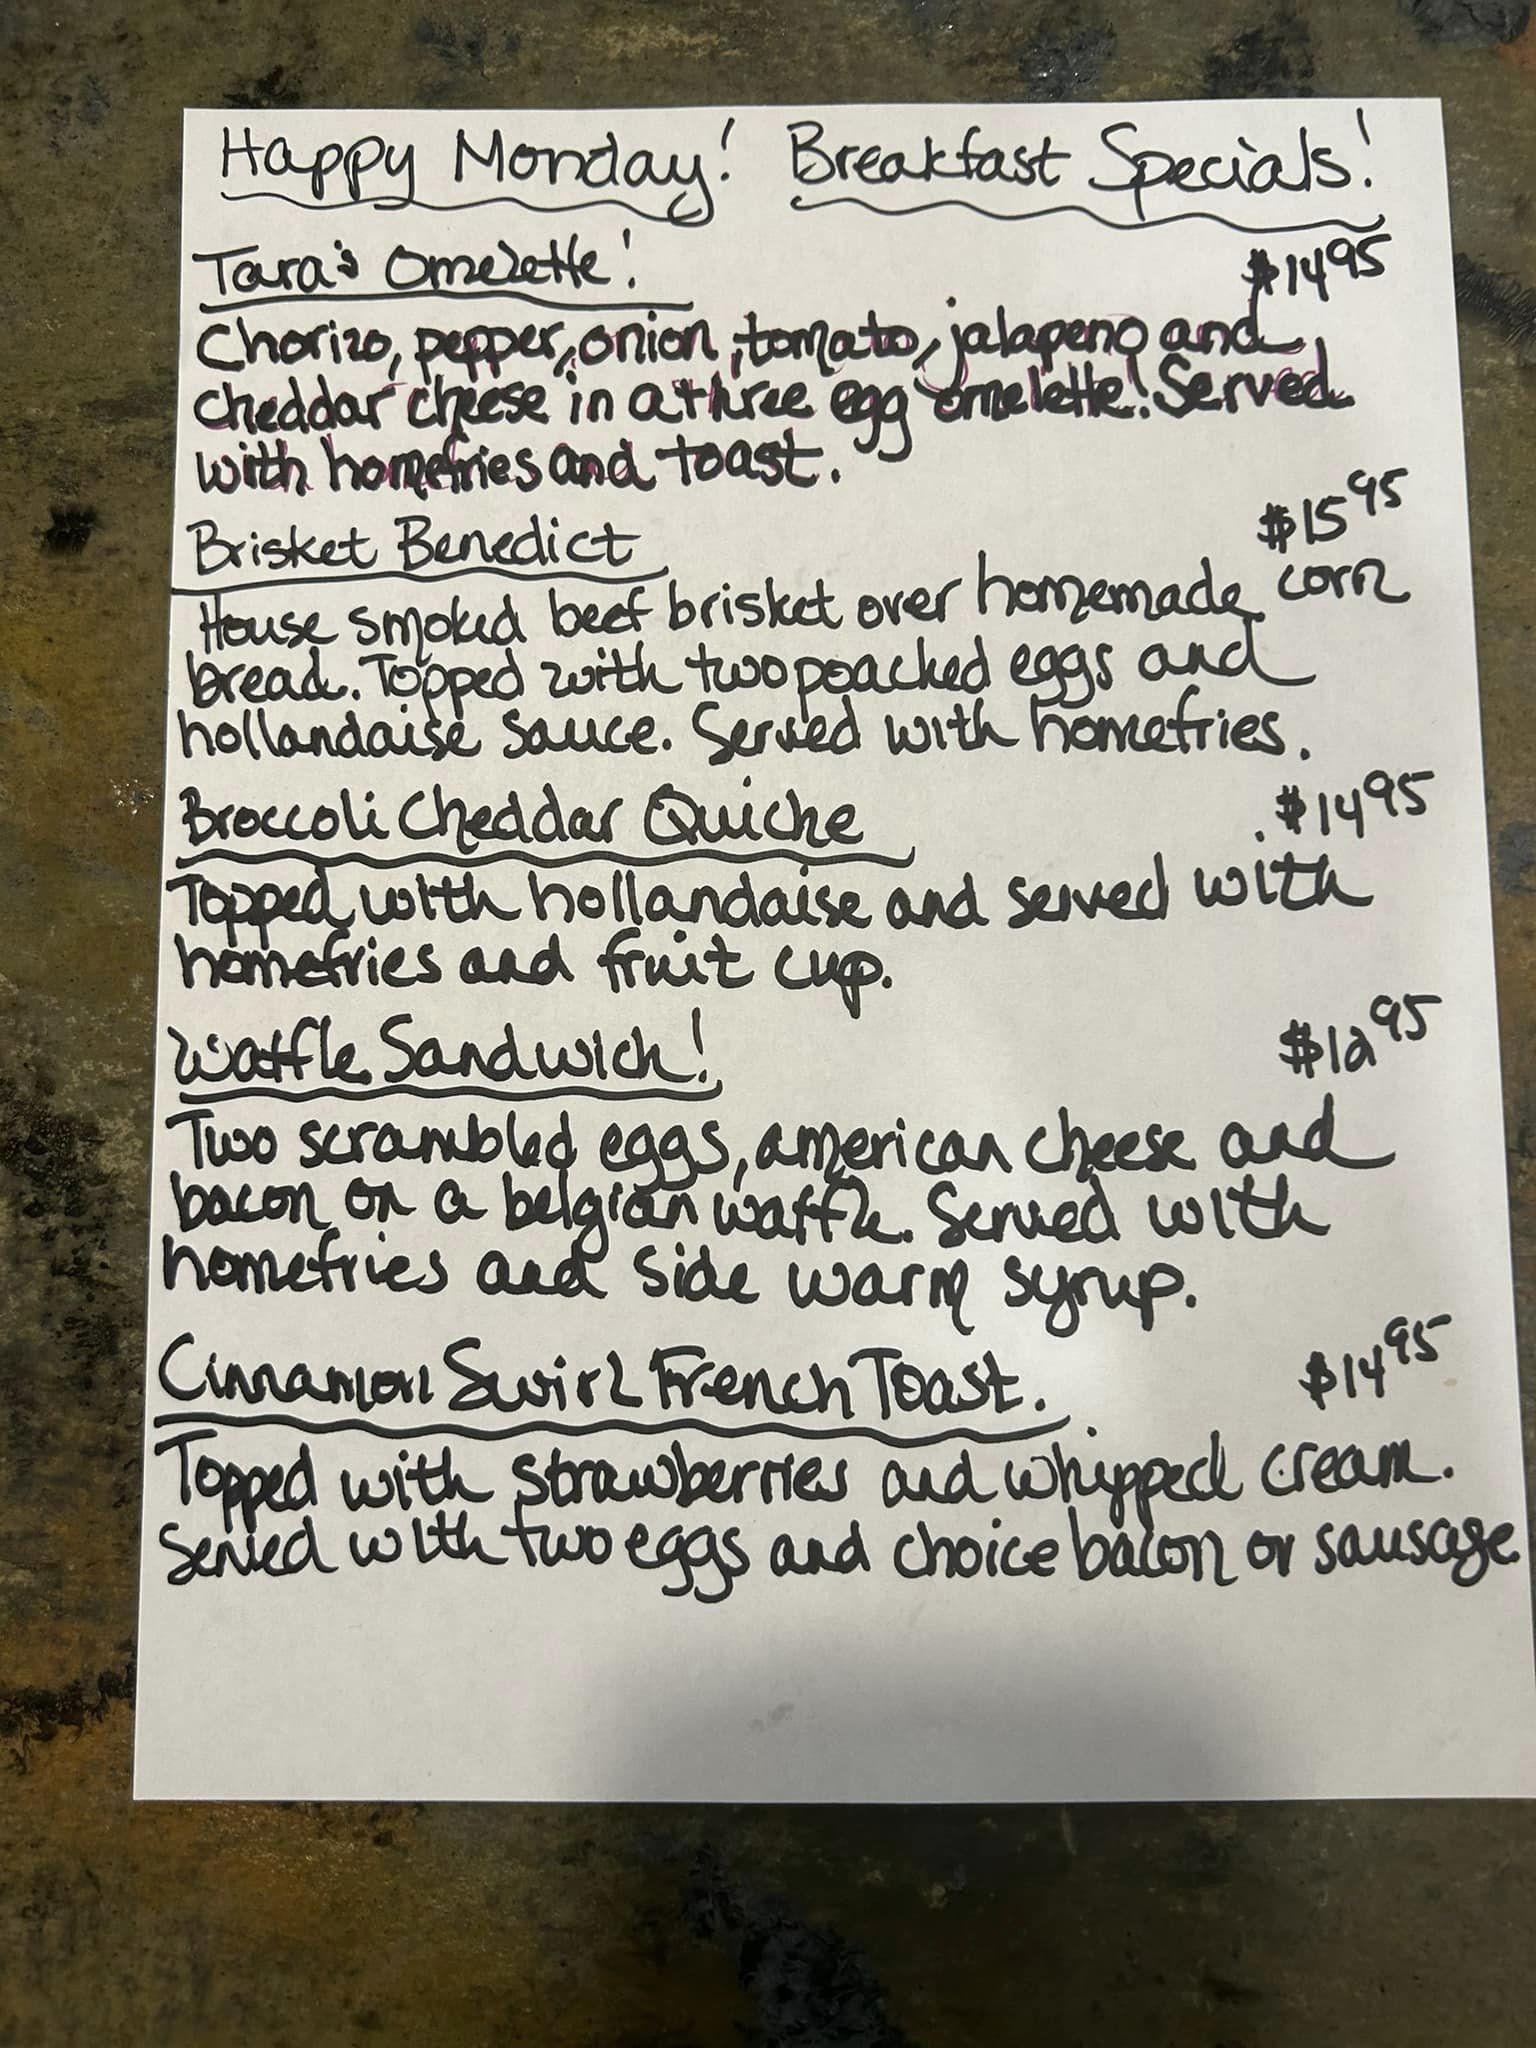 Happy Monday! Breakfast Specials!
Tara's Omelette! $14.95
Chorizo, pepper, onion, tomato, jalapeno and
cheddar cheese in a three egg omelette! Served
with homefries and toast.
Brisket Benedict $15.95
House smoked beef brisket over homemade corn
bread. Topped with two poached eggs and
hollandaise sauce. Served with homefries.
Broccoli Cheddar Quiche $14.95
Topped with hollandaise and served with
homefries and fruit cup.
Waffle Sandwich! $12.95
Two scrambled eggs, american cheese and
bacon on a belgian waffle. Served with
homefries and side warm syrup.
Cinnamon Swirl French Toast. $14.95
Topped with strawberries and whipped cream.
Served with two eggs and choice bacon or sausage